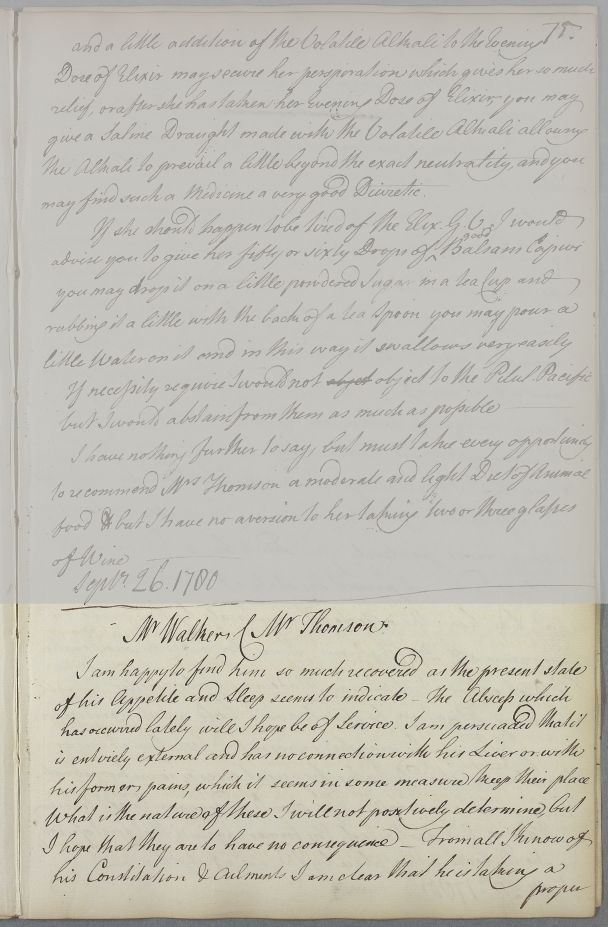 75.
and a little addition of the Volatile Alkali to the Evening
Dose of Elixir may secure her perspiration which gives her so much
relief, or after she has taken her Evening Dose of Elixir you may
give a Saline Draught made with the Volatile Alkali allowing
the Alkali to prevail a little beyond the exact neutrality, and you
may find such a Medicine a very good Diuretic.
If she should happen to be tired of the Elix. G. V. I would
advise you to give her fifty or sixty Drops of good Balsam Capivi
you may drop it on a little powdered Sugar in a tea Cup and
rubbing it a little with the back of a tea Spoon you may pour a
little Water on it and in this way it swallows very easily
If necessity require I would not object to the Pilul Pacific
but I would abstain from them as much as possible
I have nothing further to say, but must take every opportunity
to recommend Mrs Thomson a moderate and light Diet of Animal
food & but I have no aversion to her taking two or three glasses
of Wine
Septr. 26. 1780
Mr Walker, C Mr Thomson.
I am happy to find him so much recovered as the present state
of his Appetite and Sleep seems to indicate – The Abscess which
has occurred lately will I hope be of Service. I am persuaded that it
is entirely external and has no connection with his Liver or with
his former pains, which it seems in some measure keep their place
What is the nature of these I will not positively determine, but
I hope that they are to have no consequence – From all I know of
his Constitution & Ailments I am clear that he is taking a
proper